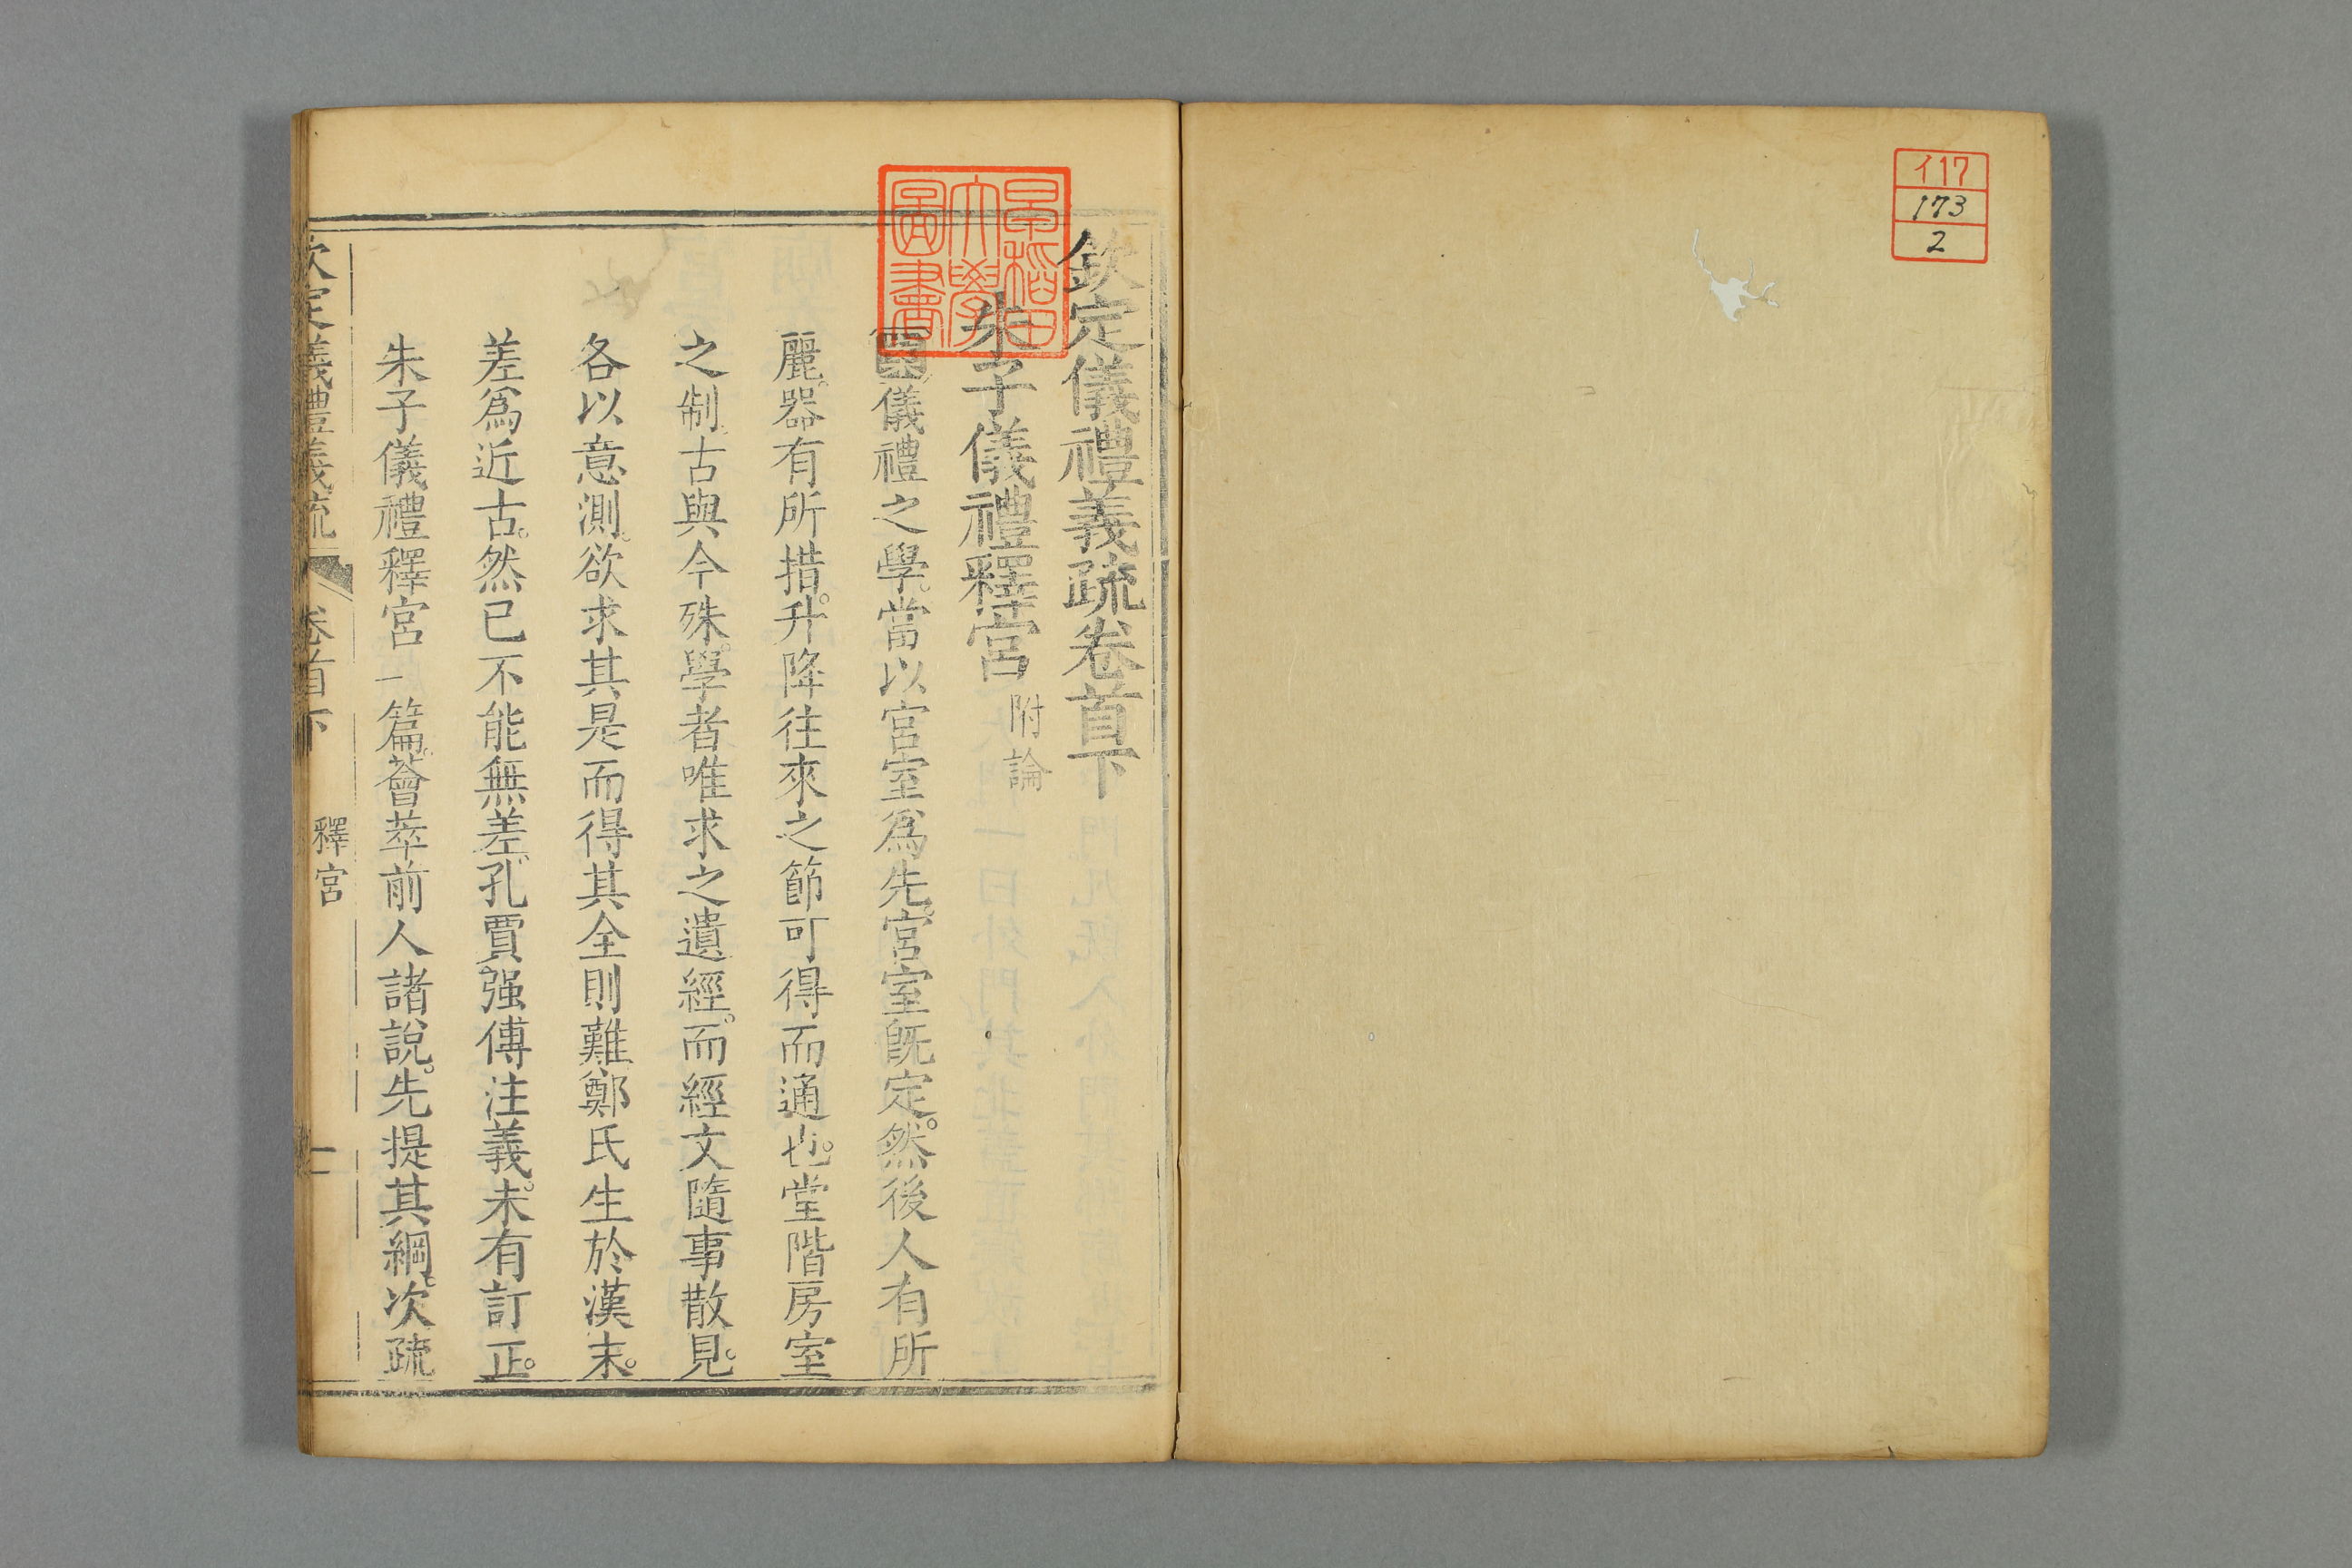 イ17
173
2
欽定儀禮義疏卷首下
朱子儀禮釋宮 附論
儀禮之學。當以宮室爲先。宮室既定。然後人有所
麗。器有所措。升降往來之節可得而通也。堂階房室
之制。古與今殊。學者唯求之遺經。而經文隨事散見。
各以意測。欲求其是而得其全則難。鄭氏生於漢末。
差爲近古。然已不能無差。孔賈强傅注義。未有訂正。
朱子儀禮釋宮一篇。薈萃前人諸說。先提其綱。次疏
欽定儀禮義疏 卷首下 釋宮 一
早稻田大學圖書